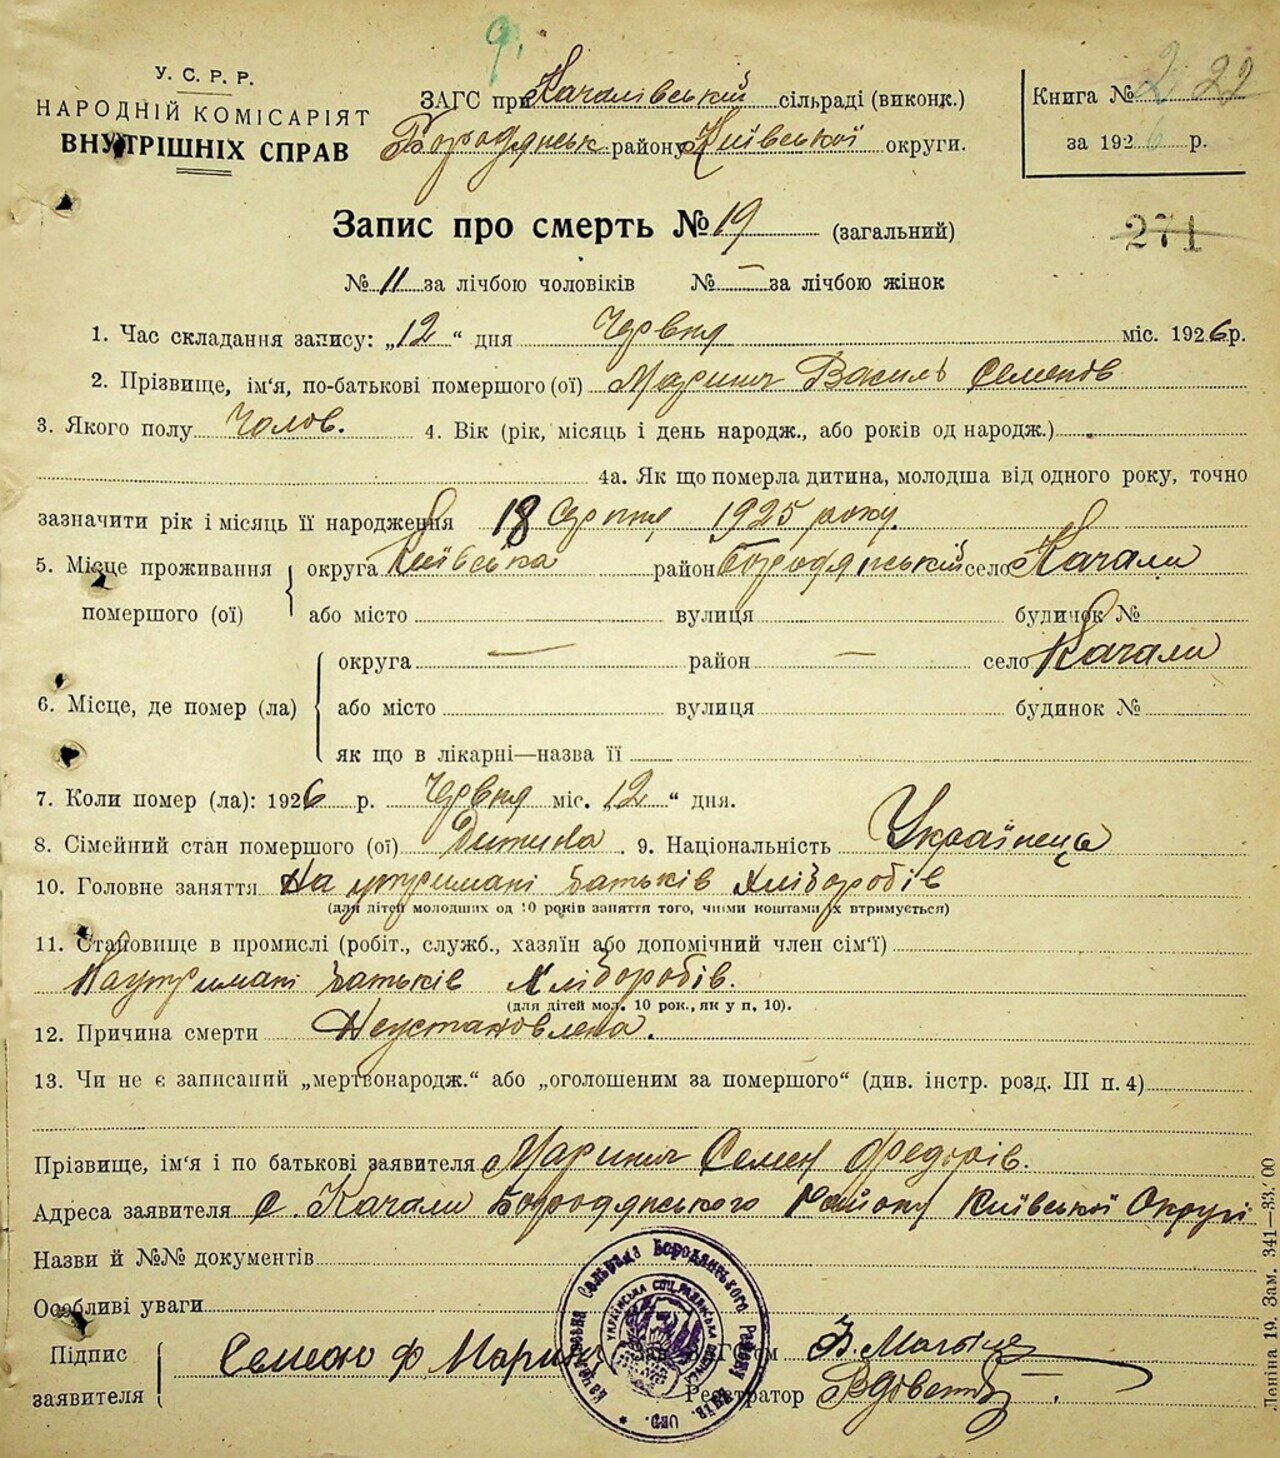 9.
У. С. Р. Р.
НАРОДНІЙ КОМІСАРІЯТ
ВНУТРІШНІХ СПРАВ
ЗАГС при Качалівській сільраді (виконк.)
Бородянськ. району Київської округи.
Книга № 2 22
за 1926 р.
Запис про смерть № 19 (загальний)
271
№ 11 за лічбою чоловіків № — за лічбою жінок
1. Час складання запису: „12“ дня Червня міс. 1926 р.
2. Прізвище, ім'я, по-батькові помершого (ої) Маринич Василь Семенів
3. Якого полу Чолов. 4. Вік (рік, місяць і день народж., або років од народж.)
4а. Як що померла дитина, молодша від одного року, точно
зазначити рік і місяць її народження 18 Серпня 1925 року.
5. Місце проживання помершого (ої) округа Київська район Бородянський село Качали
або місто вулиця будинок №
6. Місце, де помер (ла) округа — район — село Качали
або місто вулиця будинок №
як що в лікарні—назва її
7. Коли помер (ла): 1926 р. Червня міс. 12 “ дня.
8. Сімейний стан помершого (ої) Дитина. 9. Національність Українець
10. Головне заняття На утримані батьків хліборобів
(для дітей молодших од 10 років заняття того, чиїми коштами їх втримується)
11. Становище в промислі (робіт., служб., хазяїн або допомічний член сім'ї)
На утримані батьків хліборобів.
(для дітей мол. 10 рок., як у п, 10).
12. Причина смерти Неустановлена.
13. Чи не є записаний „мертвонародж.“ або „оголошеним за помершого“ (див. інстр. розд. III п. 4)
Прізвище, ім'я і по батькові заявителя Маринич Семен Федорів.
Адреса заявителя с. Качали Бородянського Району Київської Округи
Назви й №№ документів
Особливі уваги
Підпис заявителя Семен Ф Марин
Зав. ЗАГС'ом
Реєстратор
Качалівська Сельрада Бородянського Району Київ. окр.
УКРАЇНСЬКА СОЦ. РАДЯНСЬКА
Леніна 19. Зам. 341—33.